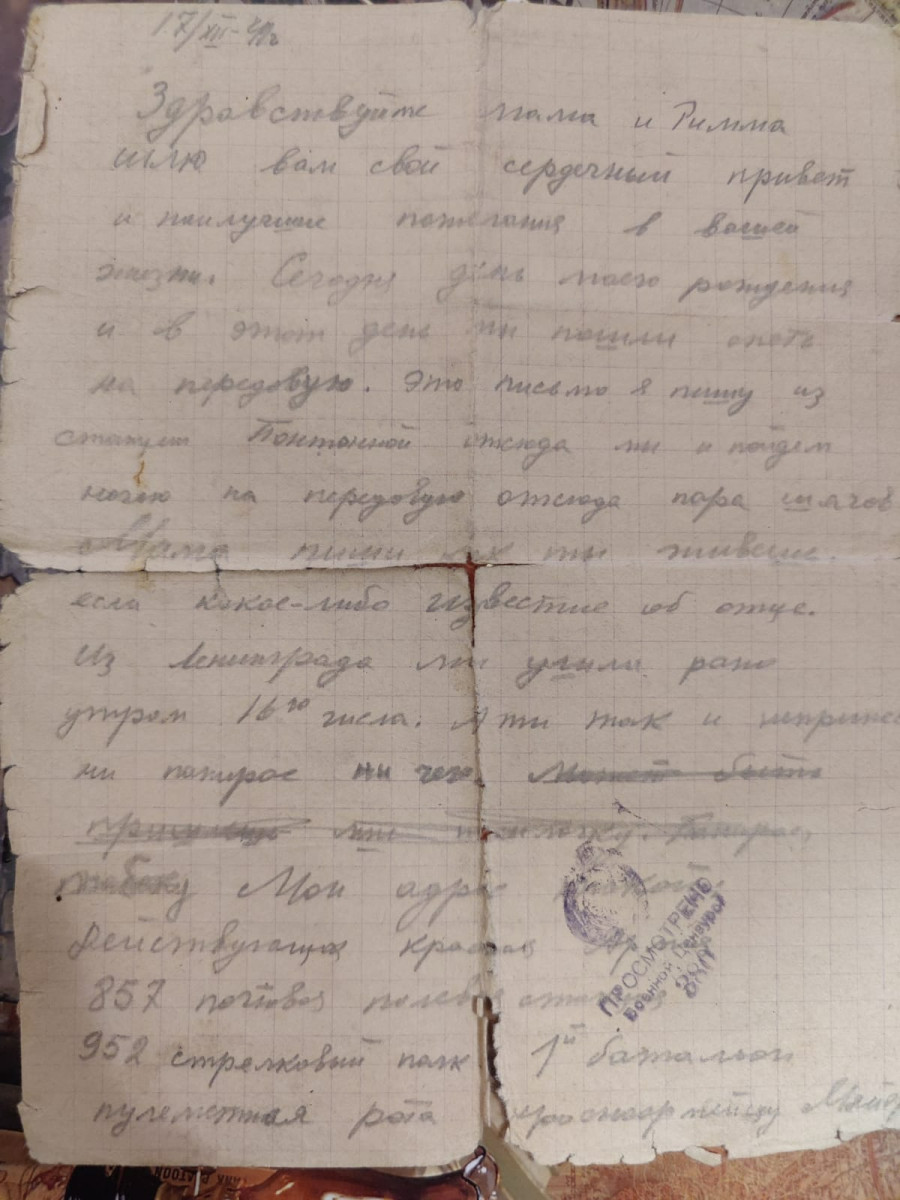 17/XII-41г
Здравствуйте мама и Римма
шлю вам свой сердечный привет
и наилучшие пожелания в вашей
жизни. Сегодня день моего рождения
и в этот день мы пошли опять
на передовую. Это письмо я пишу из
станции Понтонной отсюда мы и пойдем
ночью на передовую отсюда пара шагов
Мама пиши как ты живешь.
если какое-либо известие об отце.
Из Ленинграда мы ушли рано
утром 16го числа. А ты так и
ни папирос ни чего. Может быть
мы посылочку. Папирос,
табаку Мой адрес такой:
Действующая красная Армия
857 почтовая полевая станция
952 стрелковый полк 1й батальон
пулеметная рота красноармейцу
ПРОСМОТРЕНО
Военной Цензурой